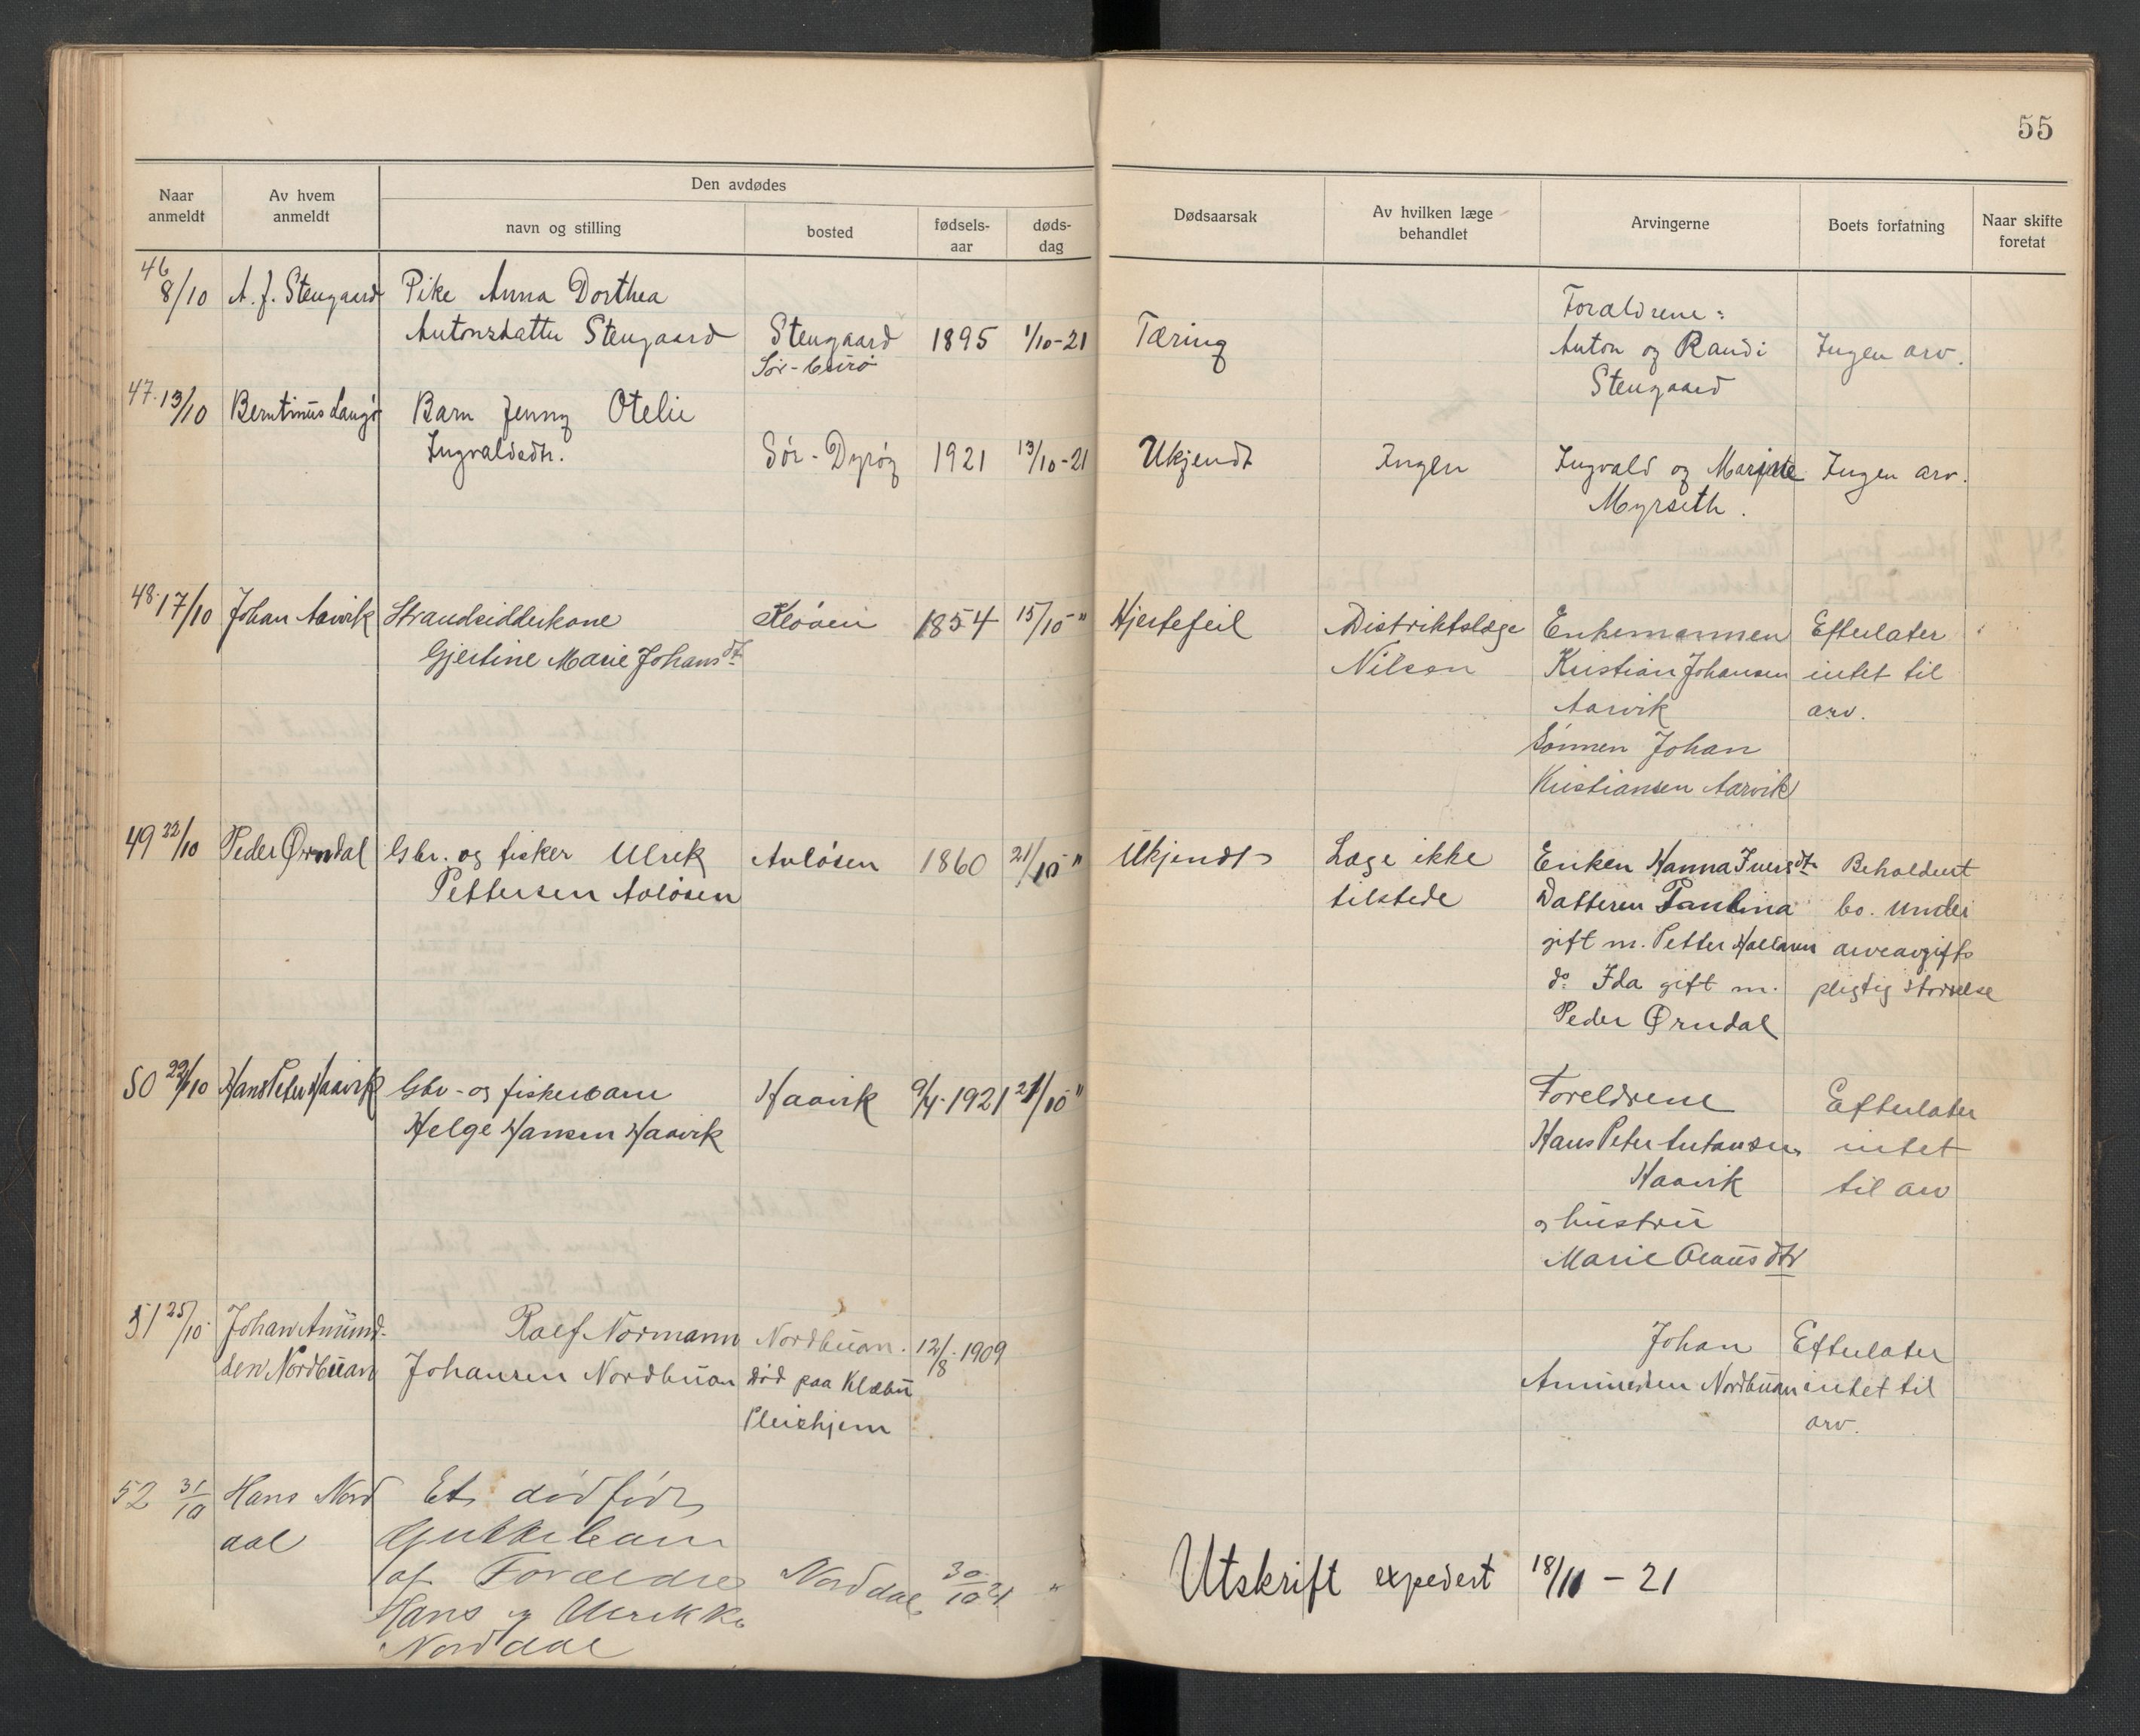 55
Naar anmeldt
Av hvem anmeldt
Den avdødes
navn og stilling
bosted
fødsels-aar
døds-dag
Dødsaarsak
Av hvilken læge behandlet
Arvingerne
Boets forfatning
Naar skifte foretat
46
8/10 A. J. Stengaard Pike Anna Dorthea
Antonsdatter Stengaard Stengaard 1895 1/10-21 Tæring
Sør-
Forældrene:
Anton og Randi Ingen arv.
Stengaard
47. 13/10 Berntinus Langø Barn Jenny Otelie
Ingvaldsdtr. Sør-Dyrøy 1921 13/10-21 Ukjendt Ingen Ingvald og Marine Ingen arv.
Myrseth.
48. 17/10 Johan Aarvik Strandsidderkone Kløven 1854 15/10 " Hjertefeil Distriktslæge Enkemannen Efterlater
Gjertine Marie Johansdt. Nilsen Kristian Johansen intet til
Aarvik arv.
Sønnen Johan
Kristiansen Aarvik
49 22/10 Peder Ørndal Gbr. og fisker Ulrik Avløsen 1860 21/10 " Ukjendt Læge ikke Enken Hanna Iversdt. Beholdent
Pettersen Avløsen tilstede Datteren Paulina bo. Under
gift m. Petter arveavgifts
do. Ida gift m. pligtig størrelse
Peder Ørndal
50 22/10 Hans Peter Haavik Gbr- og fiskerbarn Haavik 9/4-1921 21/10 " Foreldrene Efterlater
Helge Hansen Haavik Hans Peter Antonsen intet
Haavik til arv
og hustru
Marie Olausdtr
51 25/10 Johan Amund- Ralf Normann Nordbuan. 12/8.1909 Johan Efterlater
sen Nordbuan Johansen Nordbuan død paa Klæbu Amundsen Nordbuan intet til
Pleiehjem arv.
52 31/10 Hans Nord Et dødfødt
dal Guttebarn
af Forældre Norddal 30/10 21 "
Hans og Ulrikke
Norddal
Utskrift expedert 18/11 - 21